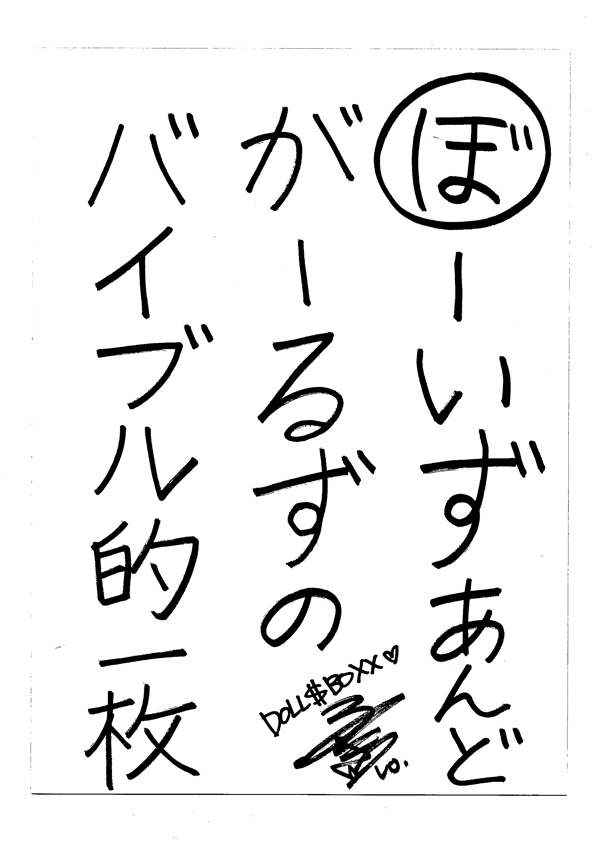 ぼーいずあんど
がーるずの
バイブル的一枚
DOLL$BOXX♡
Vo.